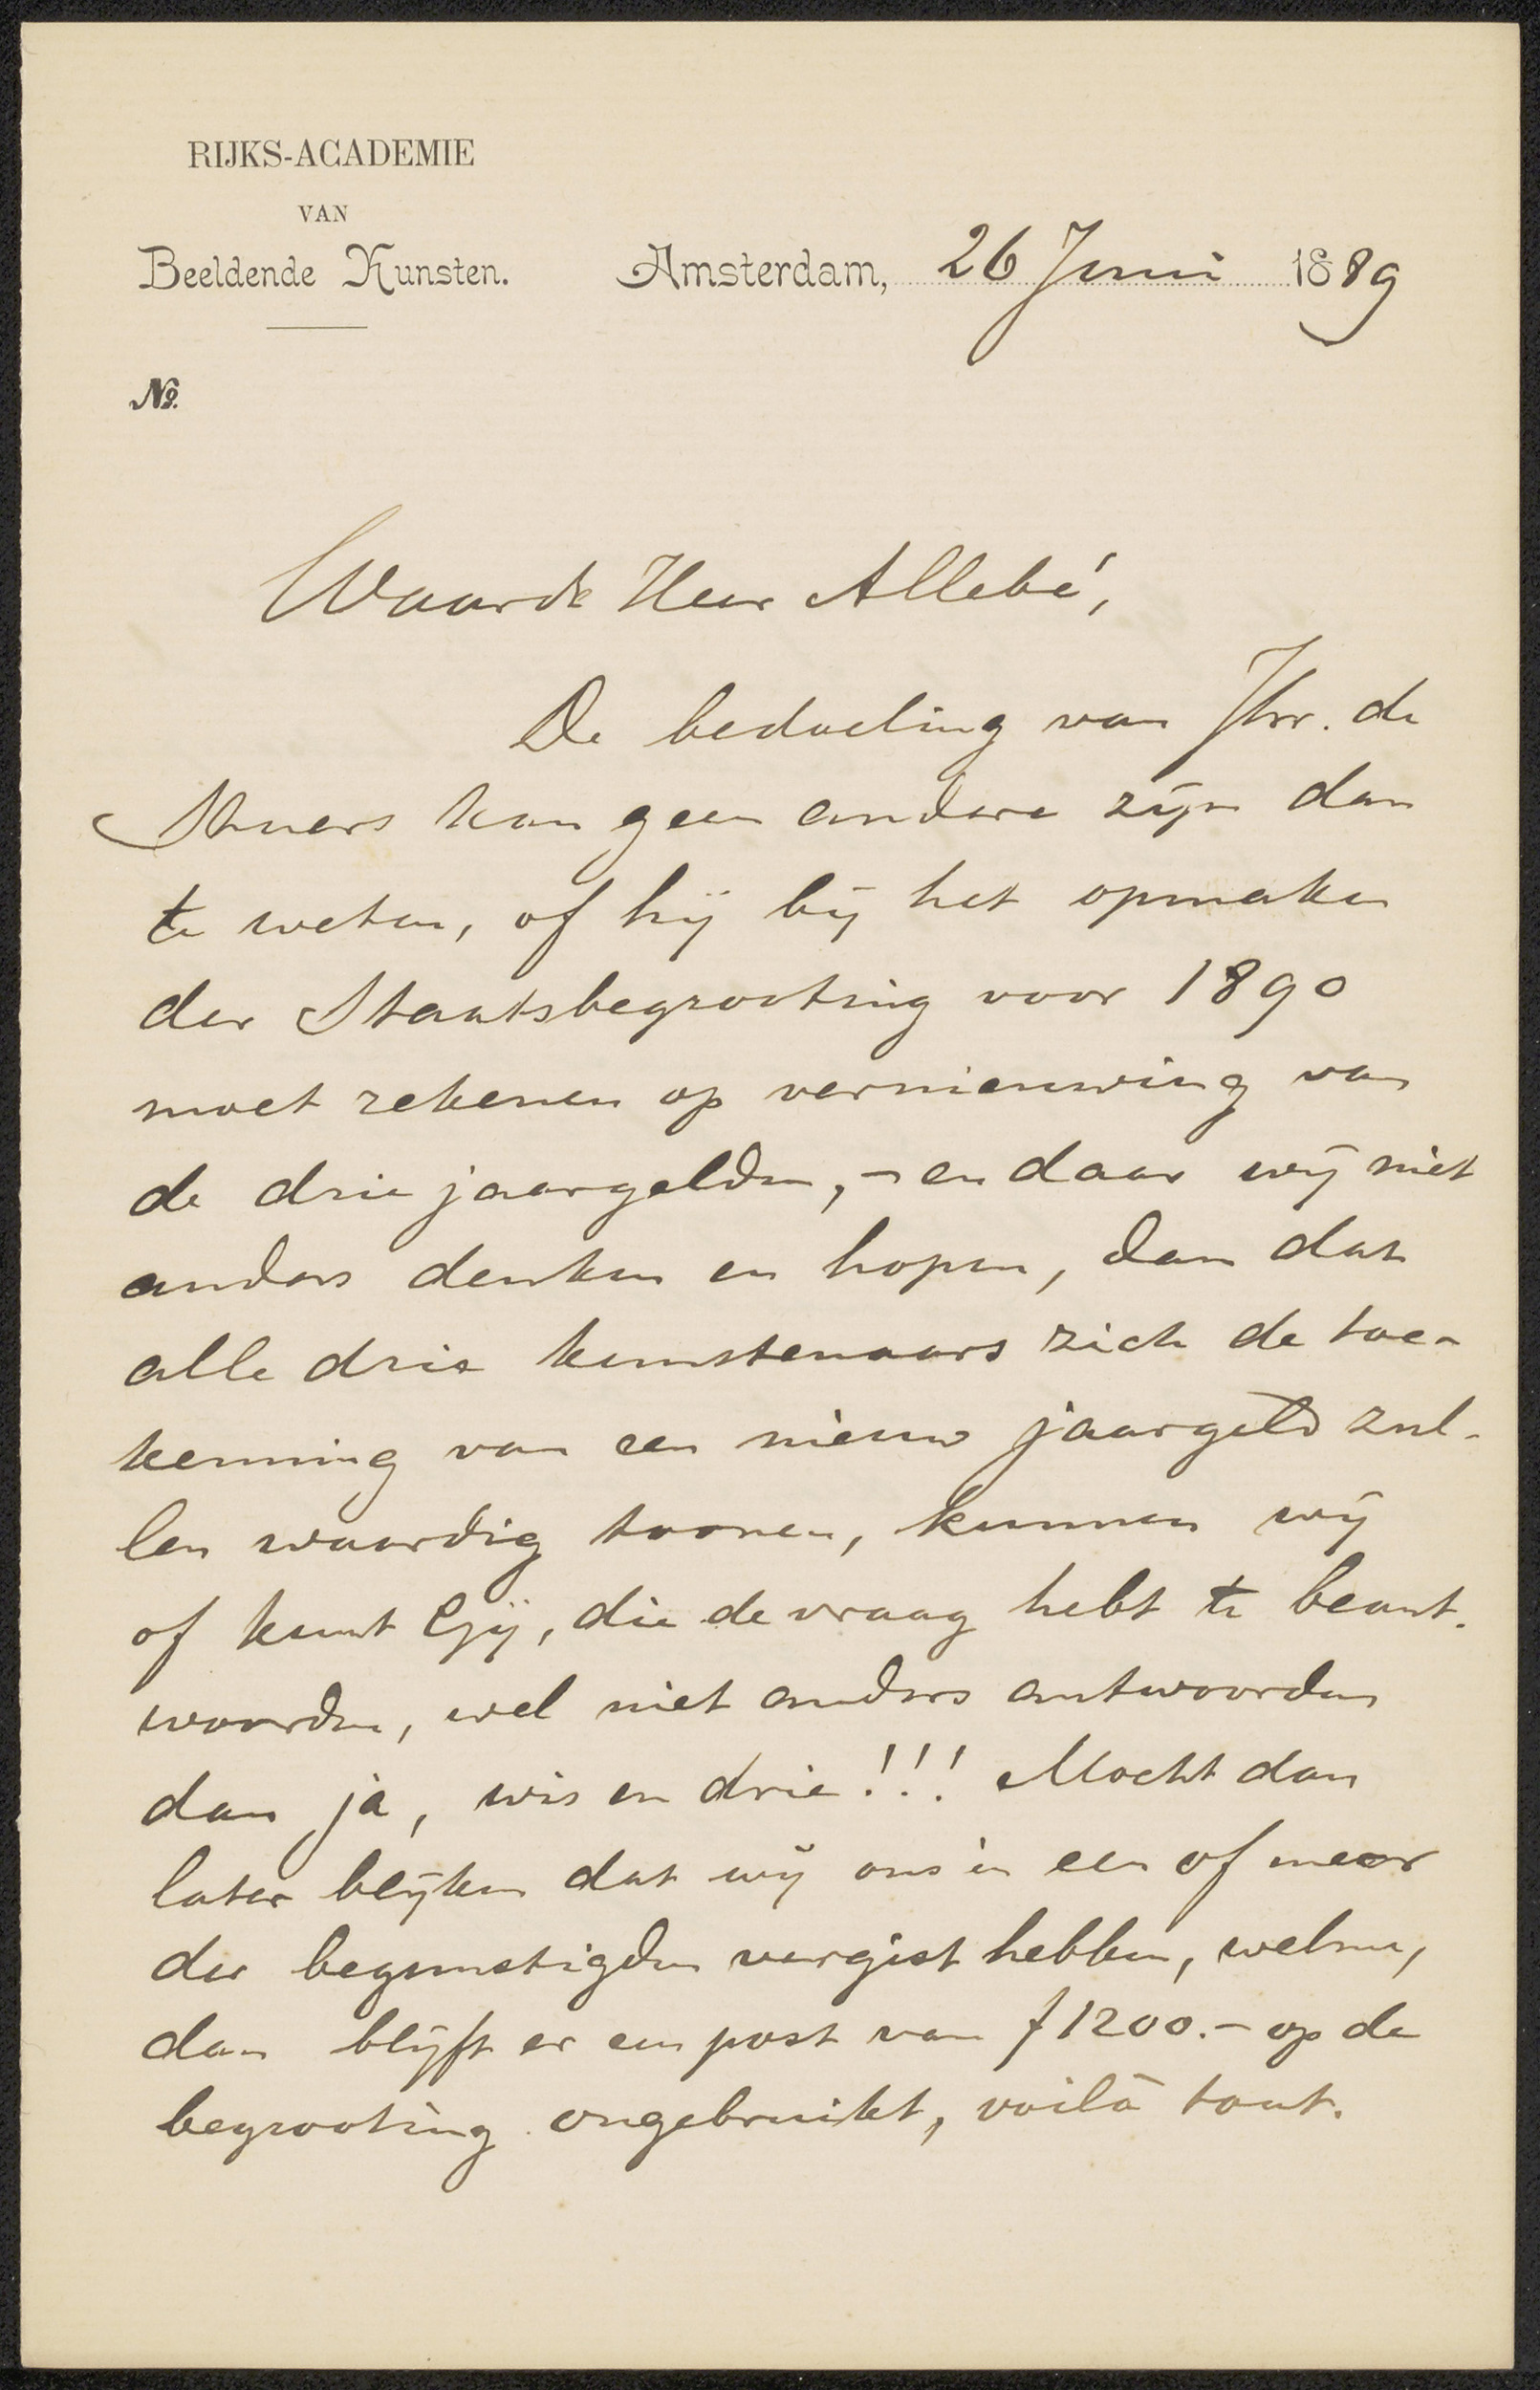 RIJKS-ACADEMIE
VAN
Beeldende Kunsten.
Amsterdam, 26 Juni 1889
No.
Waarde Heer Allebé,
De bedoeling van Jhr. de
Stuers kan geen andere zijn dan
te weten, of hij bij het opmaken
der Staatsbegrooting voor 1890
moet rekenen op vernieuwing van
de drie jaargelden, – en daar wij niet
anders denken en hopen, dan dat
alle drie kunstenaars zich de toe-
kenning van een nieuw jaargeld zul-
len waardig toonen, kunnen wij
of kunt Gij, die de vraag hebt te beant-
woorden, wel niet anders antwoorden
dan ja, wis en drie!!! Mocht dan
later blijken dat wij ons in een of meer
der begunstigden vergist hebben, welnu,
dan blijft er een post van f 1200.– op de
begrooting ongebruikt, voilà tout.